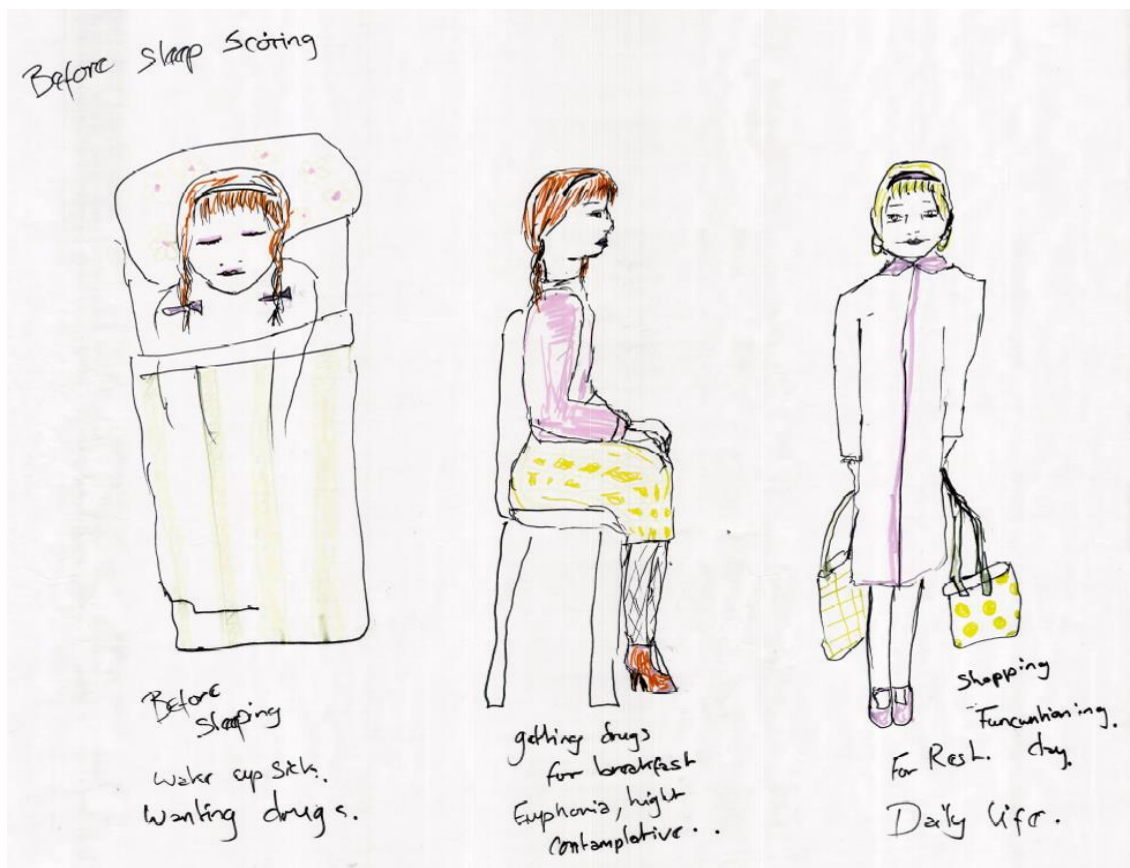 Before sleep scoring
Before
sleeping
wake up sick.
Wanting drugs.
getting drugs
for breakfast
Euphonia, hight
contamplative..
shopping
Funcuntianing.
For Rest. day.
Daily life.